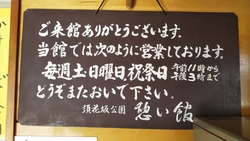 ご来館ありがとうございます。
当館では次のように営業しております。
毎週土日曜日祝祭日 午前11時から午後3時まで
どうぞまたおいで下さい。
須花坂公園 憩い館